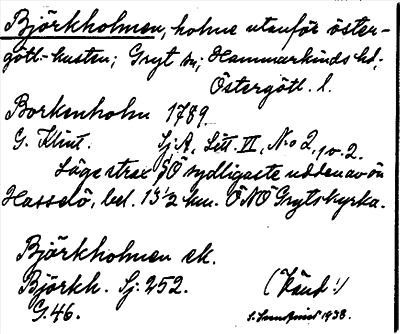 Björkholmen, holme utanför öster-
götl-kusten; Gryt sn; Hammarkinds hd;
Östergötl. l.
Borkenholm 1789.
G. Klint. Sj.A, Litt. VI, No 2, 1 o. 2.
Läge strax SÖ sydligaste udden av ön
Hasselö, bel. 13 1/2 km. ÖNÖ Gryts kyrka.
Björkholmen ek.
Björkh. Sj. 252. (Känd!)
G. 46. 1938.